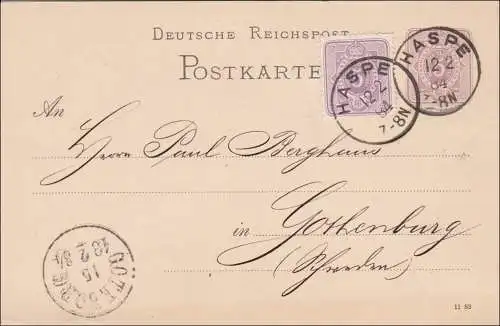 DEUTSCHE REICHSPOST
POSTKARTE
HASPE
12 2
84
7-8N
HASPE
12 2
84
7-8N
An
Herrn Paul Berghaus
in Gothenburg
(Schweden)
GÖTEBORG
15
2 84
11 83